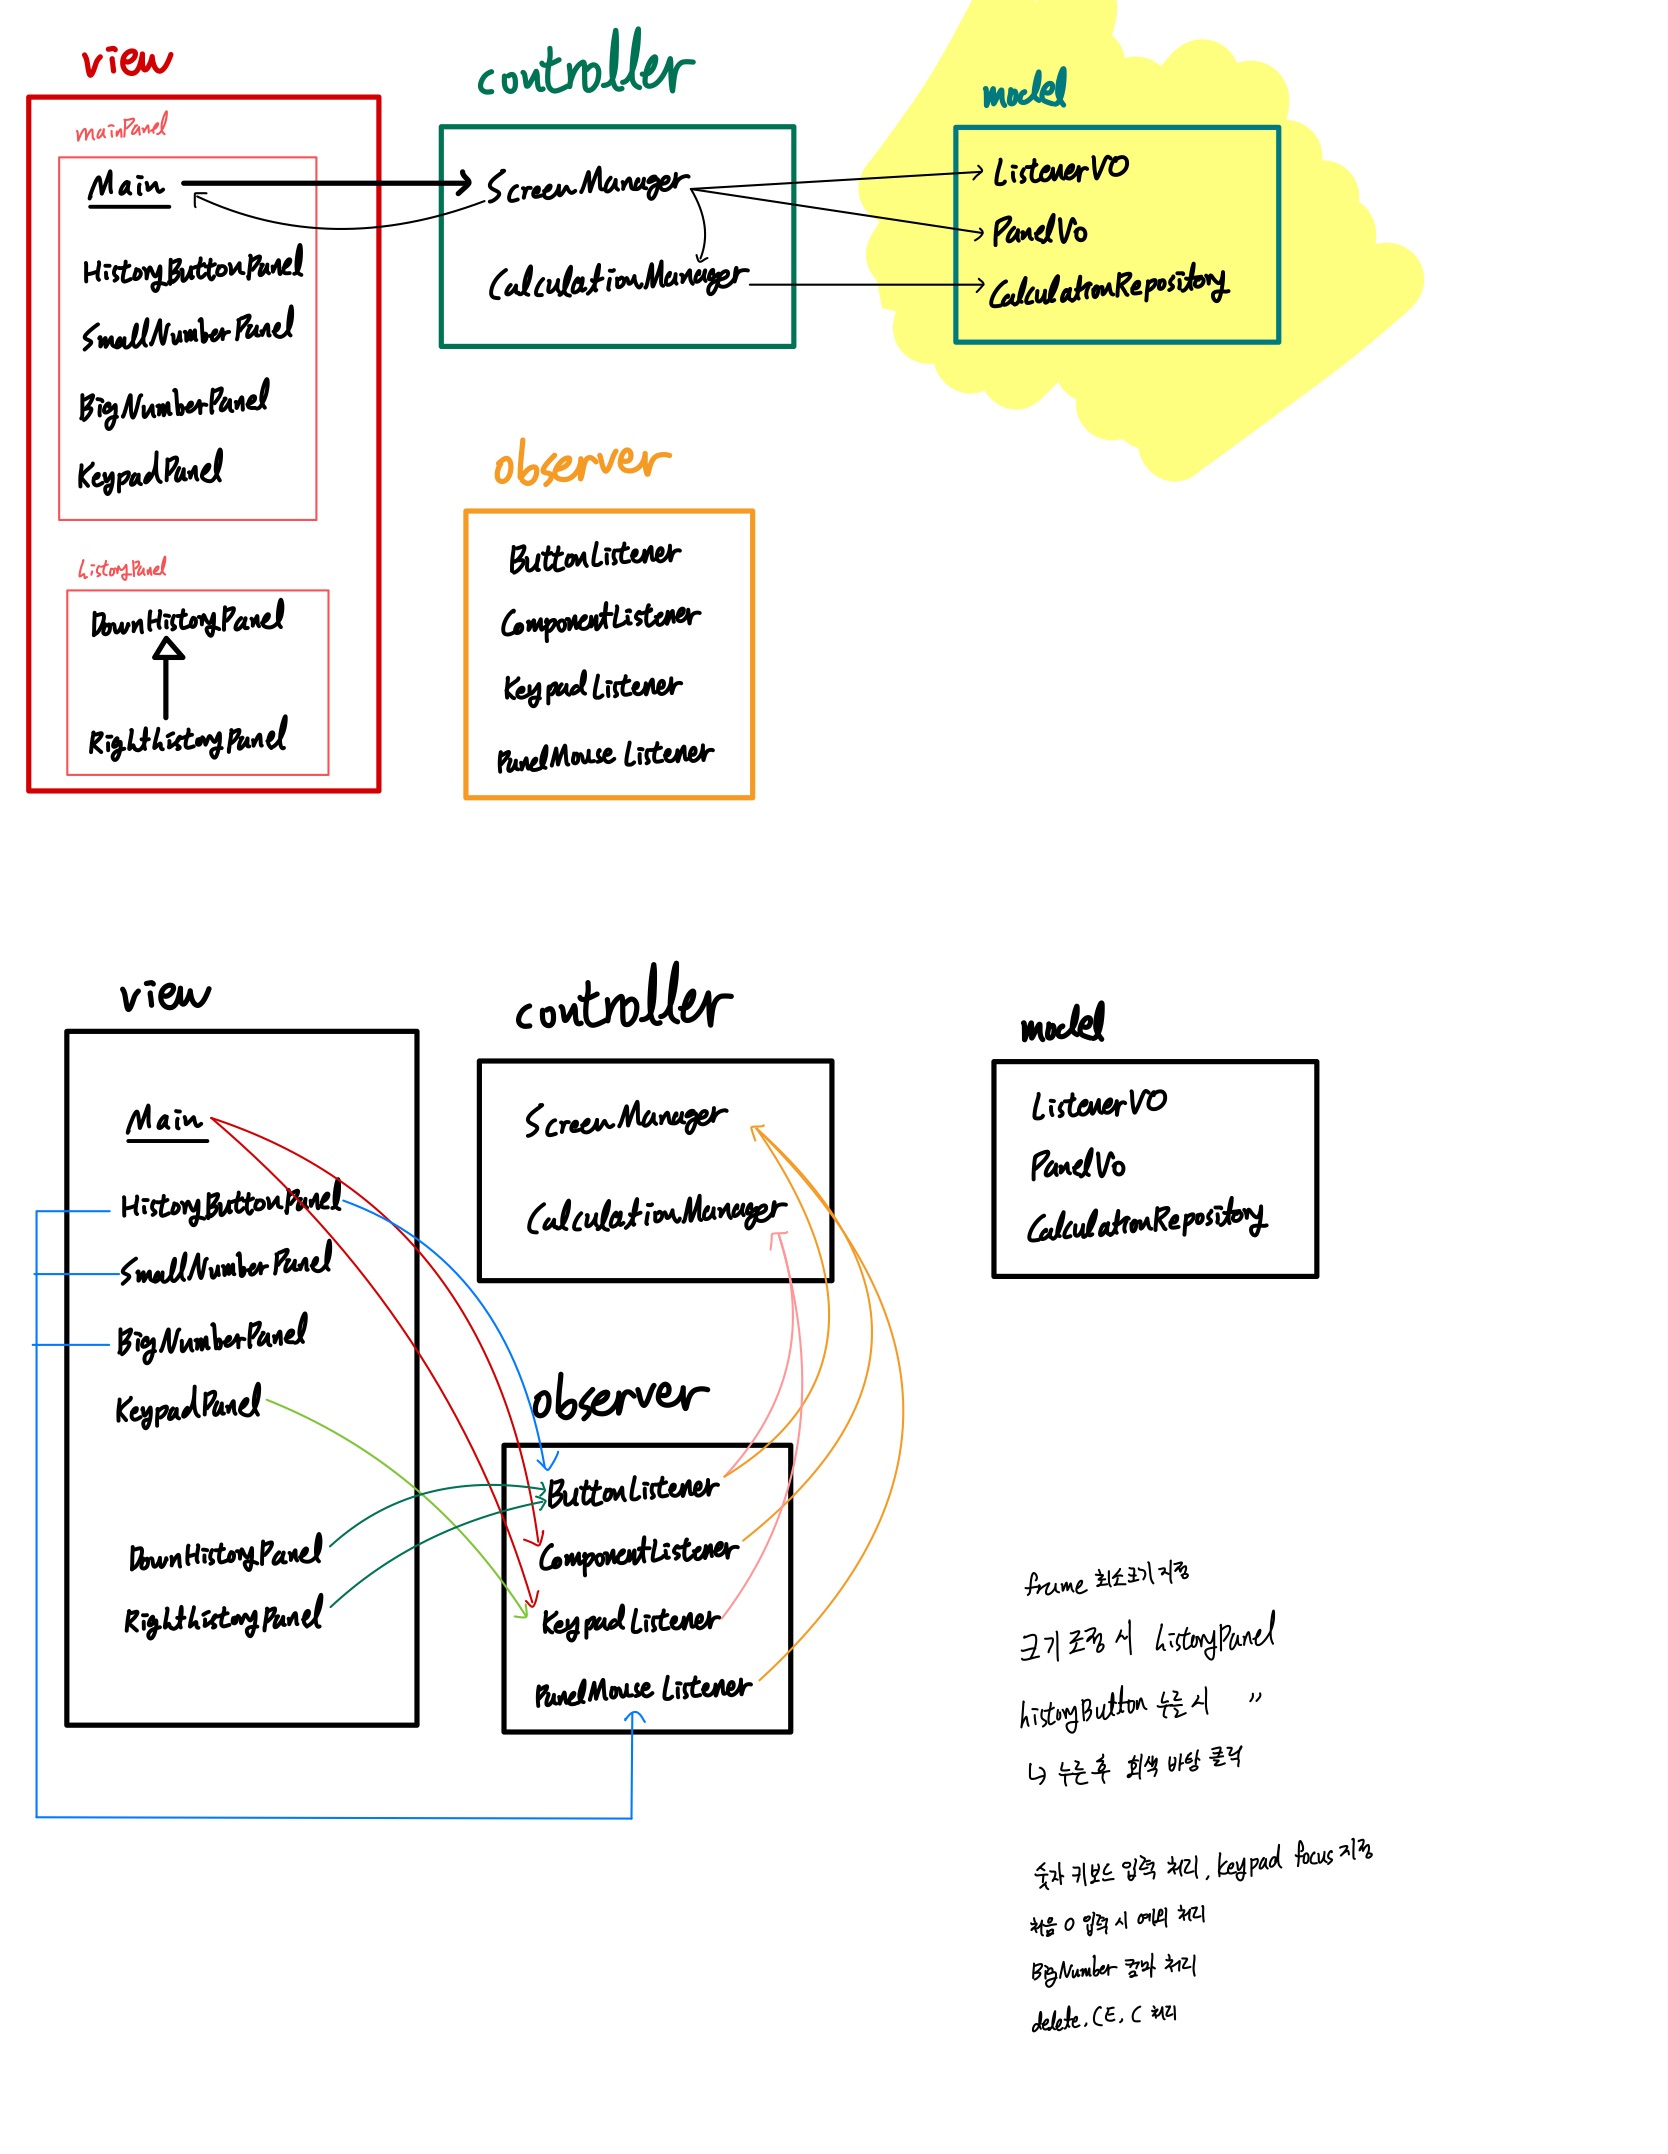 view
mainPanel
Main
HistoryButtonPanel
SmallNumberPanel
BigNumberPanel
KeypadPanel
historyPanel
DownHistoryPanel
RighthistoryPanel
controller
ScreenManager
CalculationManager
model
ListenerVO
PanelVo
CalculationRepository
observer
ButtonListener
ComponentListener
Keypad Listener
PanelMouse Listener
view
Main
HistoryButtonPanel
SmallNumberPanel
BigNumberPanel
KeypadPanel
DownHistoryPanel
RighthistoryPanel
controller
ScreenManager
CalculationManager
model
ListenerVO
PanelVo
CalculationRepository
observer
ButtonListener
ComponentListener
Keypad Listener
PanelMouse Listener
frame 최소크기 지정
크기 조정 시 historyPanel
historyButton 누를 시 〃
↳ 누른 후 회색 바탕 클릭
숫자 키보드 입력 처리, keypad focus 지정
처음 0 입력 시 예외 처리
BigNumber 콤마 처리
delete, CE, C 처리